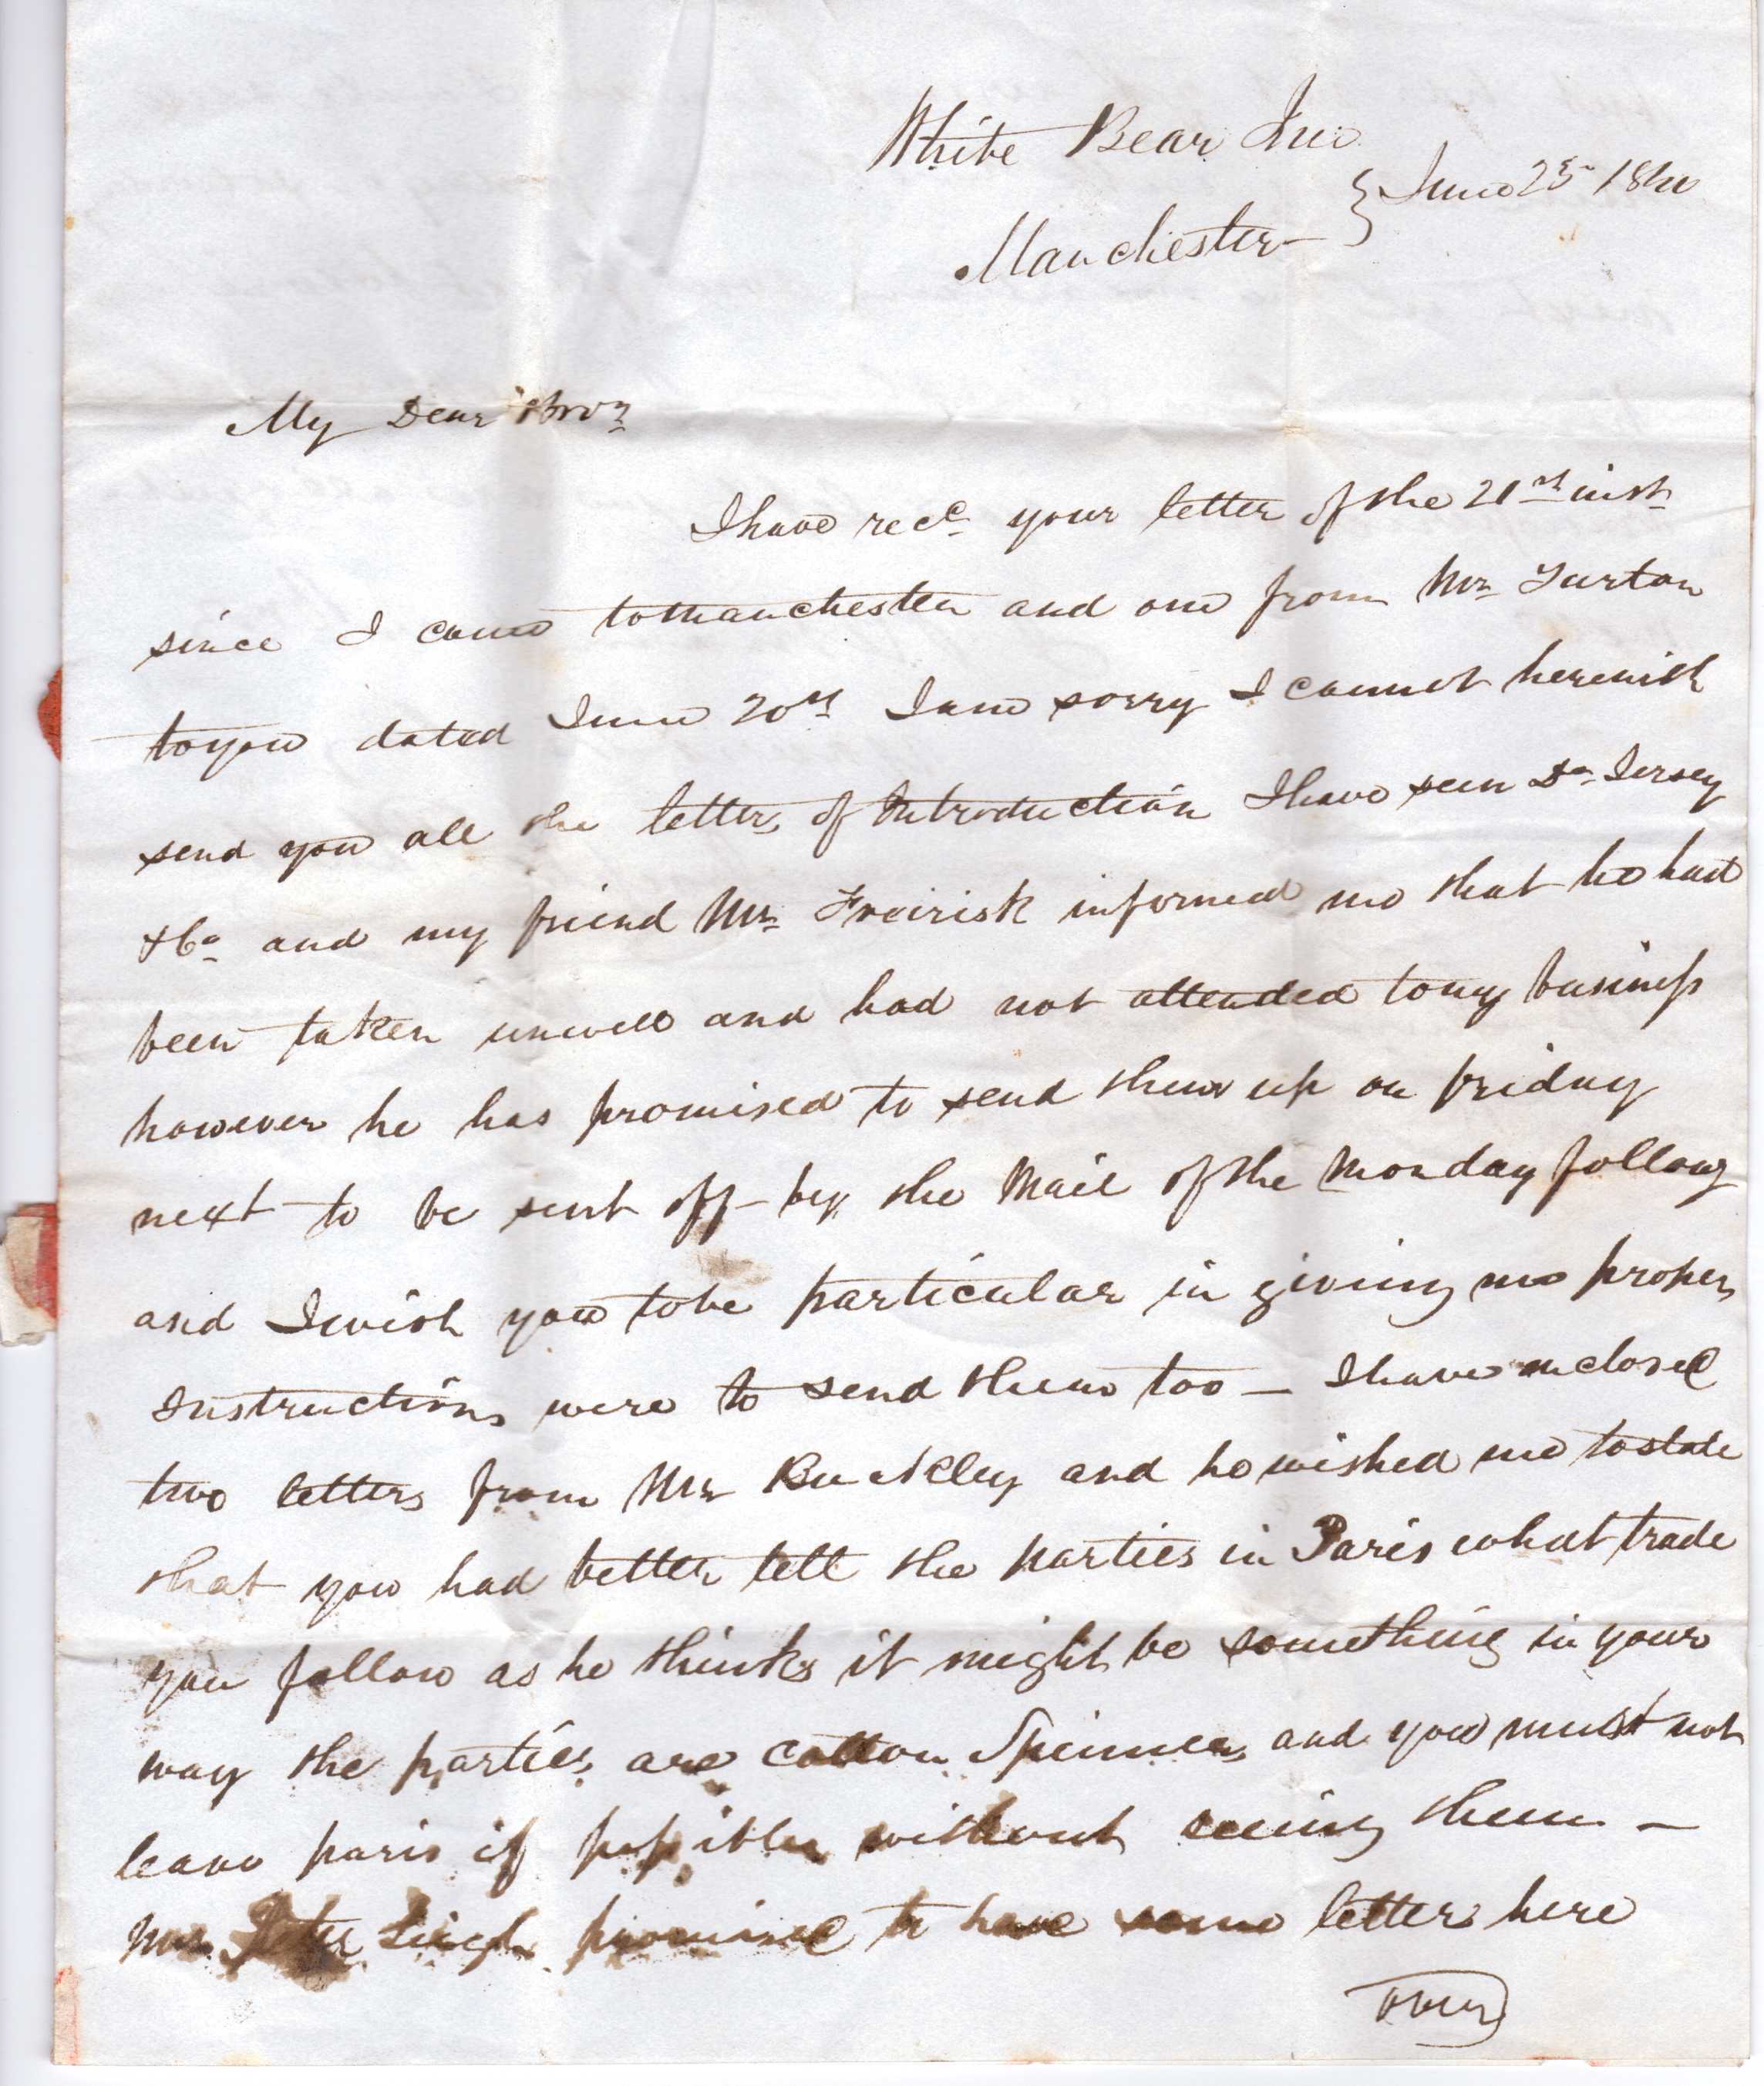 White Bear Inn
Manchester } June 23rd 1840
My Dear Bror
I have recd your letter of the 21st inst
since I came to Manchester and one from Mr Turton
to you dated June 20th I am sorry I cannot herewith
send you all the letters of Introduction I have seen De Jersey
& Co and my friend Mr informed me that he had
been taken unwell and had not attended to my business
however he has promised to send them up on friday
next to be sent off by the Mail of the Monday followg
and I wish you to be particular in giving me proper
Instructions were to send them too — I have inclosed
two letters from Mr Buckley and he wished me to state
that you had better tell the parties in Paris what trade
you follow as he thinks it might be something in your
way the parties are cotton Spinners and you must not
leave paris if possible without seeing them —
Mr Peter promised to have some letters here
over